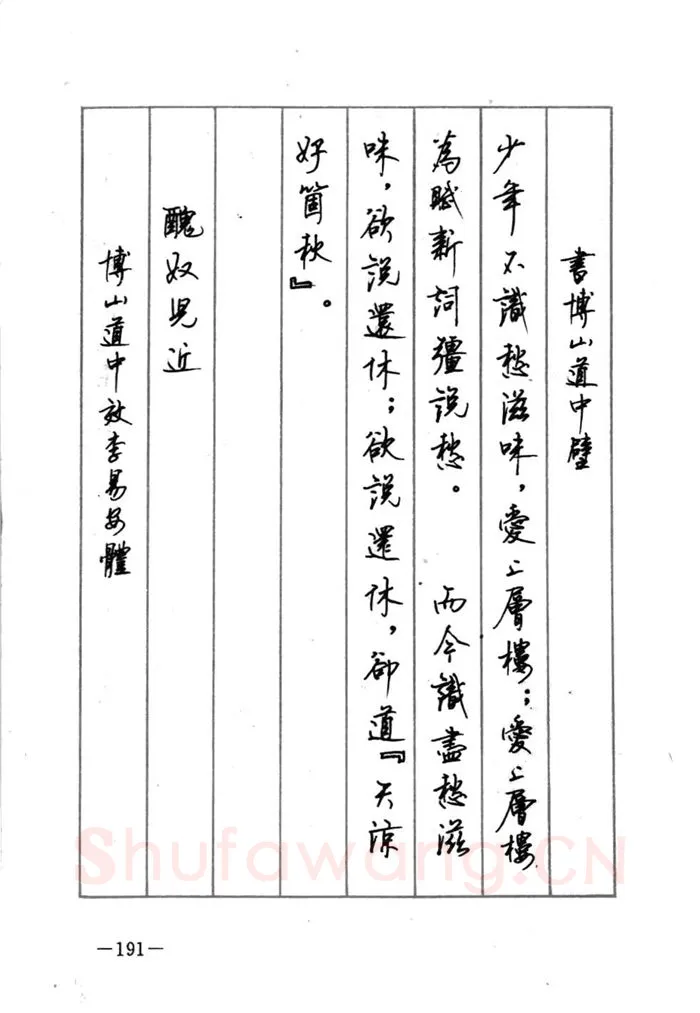 書博山道中壁
少年不識愁滋味，愛上層樓；愛上層樓
為賦新詞彊說愁。　　而今識盡愁滋
味，欲說還休；欲說還休，卻道『天涼
好箇秋』。
醜奴兒近
博山道中效李易安體
Shufawang.CN
—191—